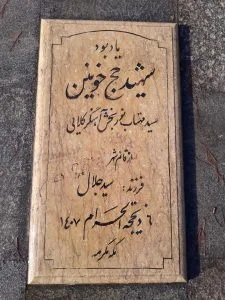 یادبود
شهید حج خونین
سید مهتاب نوربخش آهنگرکلایی
از قائم شهر
فرزند: سید جلال
۶ ذیحجه الحرام ۱۴۰۷
مکه مکرمه